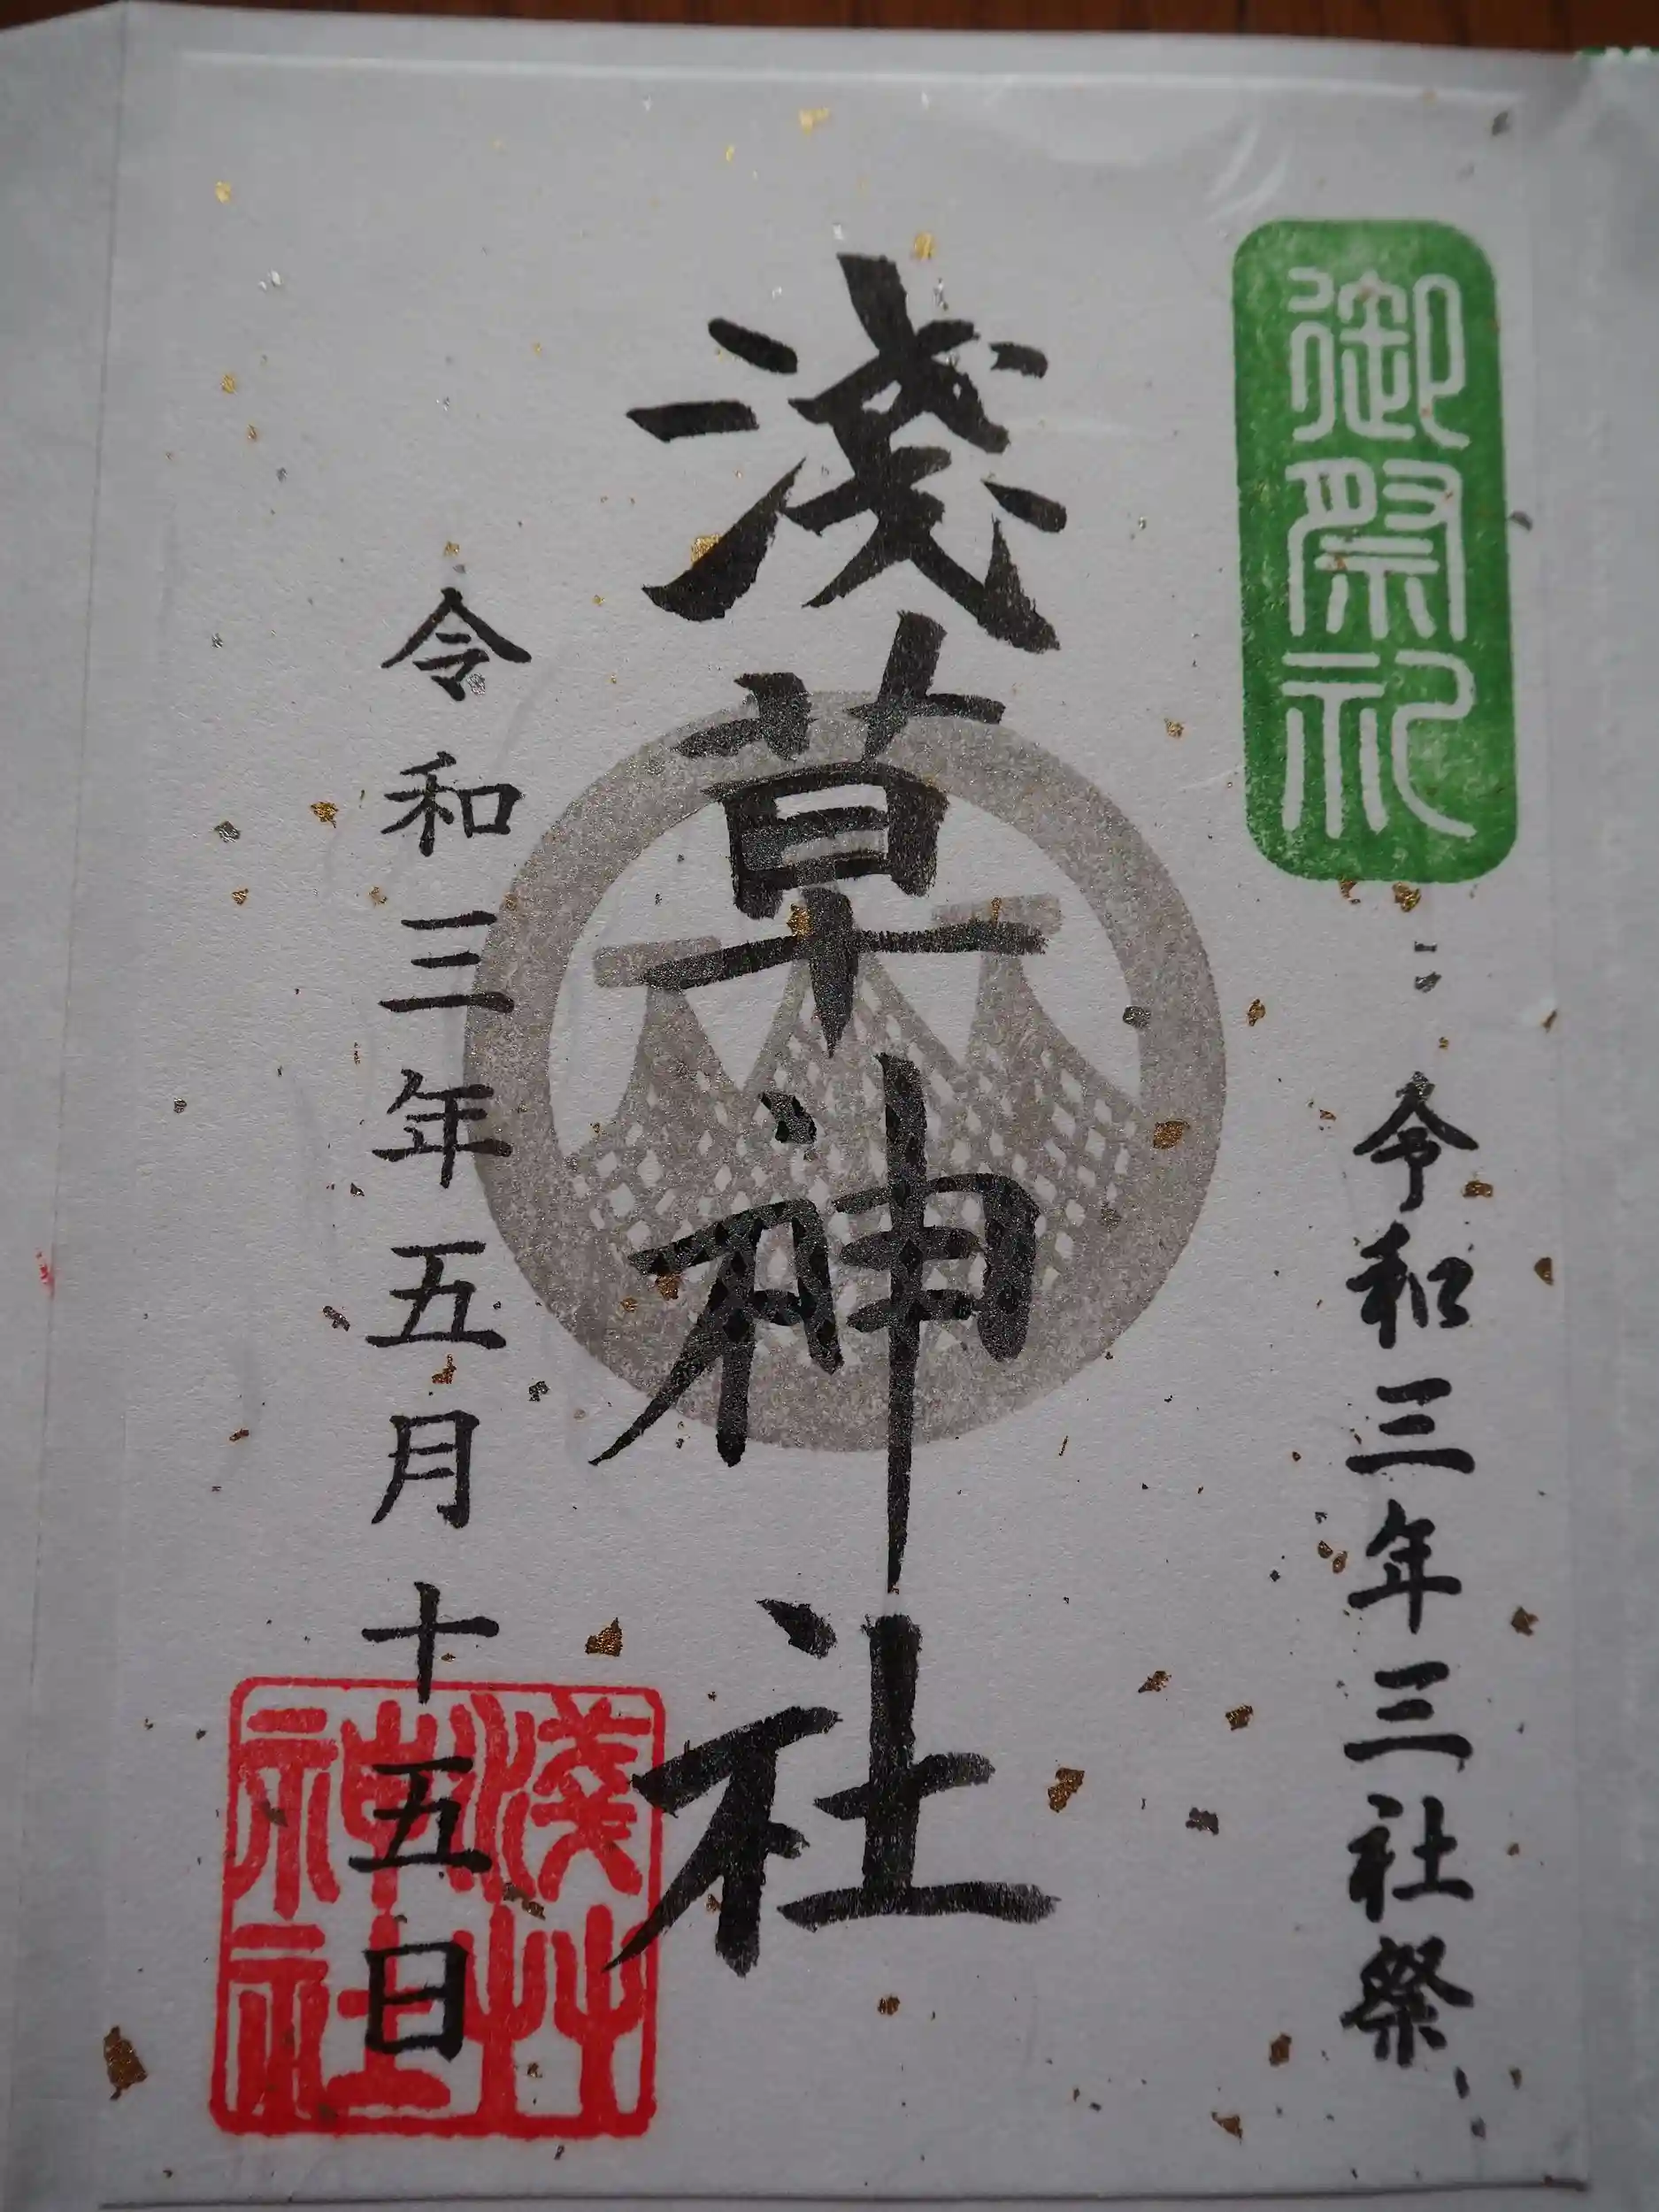 御祭礼
令和三年三社祭
浅草神社
令和三年五月十五日
淺草
神社